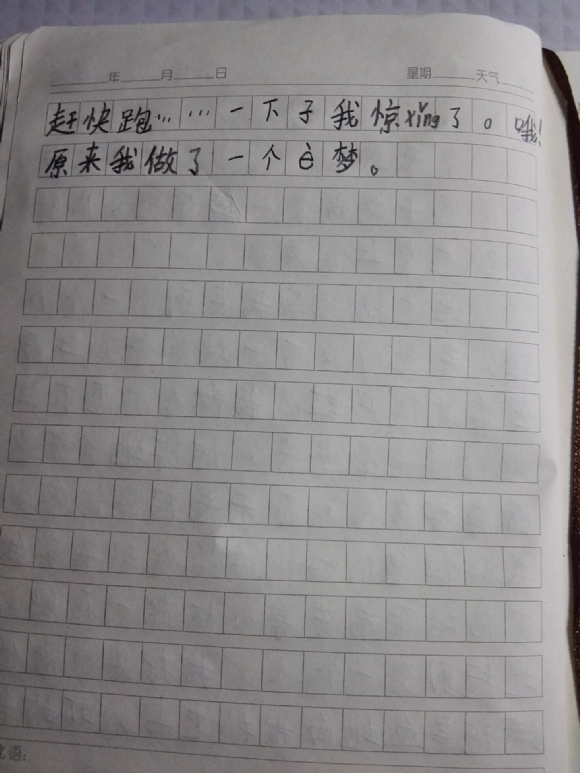 年 月 日 星期 天气
赶快跑……一下子我惊xǐng了。哦!
原来我做了一个白梦。
语: